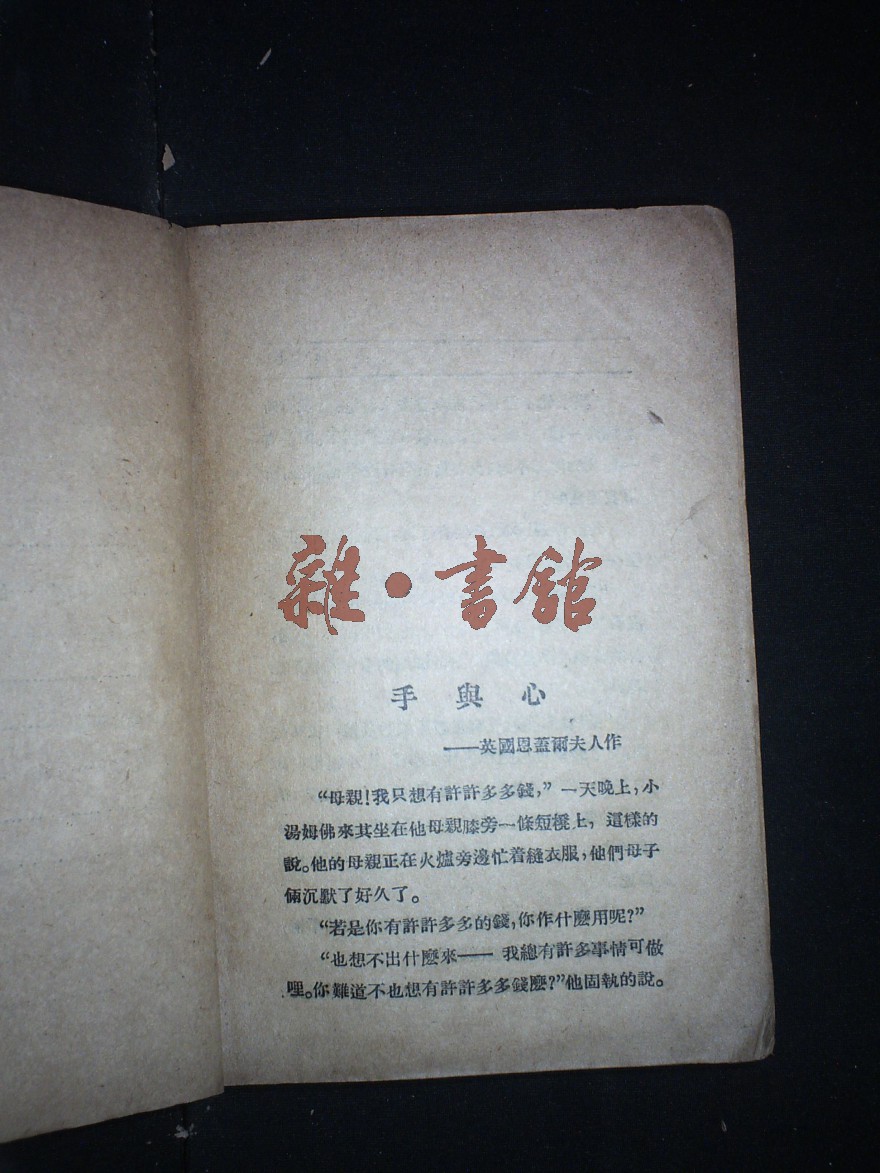 雜·書館
手與心
——英國恩蓋爾夫人作
“母親!我只想有許許多多錢,” 一天晚上,小
湯姆佛來其坐在他母親膝旁一條短櫈上, 這樣的
說。他的母親正在火爐旁邊忙着縫衣服,他們母子
倆沉默了好久了。
“若是你有許許多多的錢,你作什麽用呢?”
“也想不出什麽來—— 我總有許多事情可做
哩。你難道不也想有許許多多錢麽?”他固執的說。